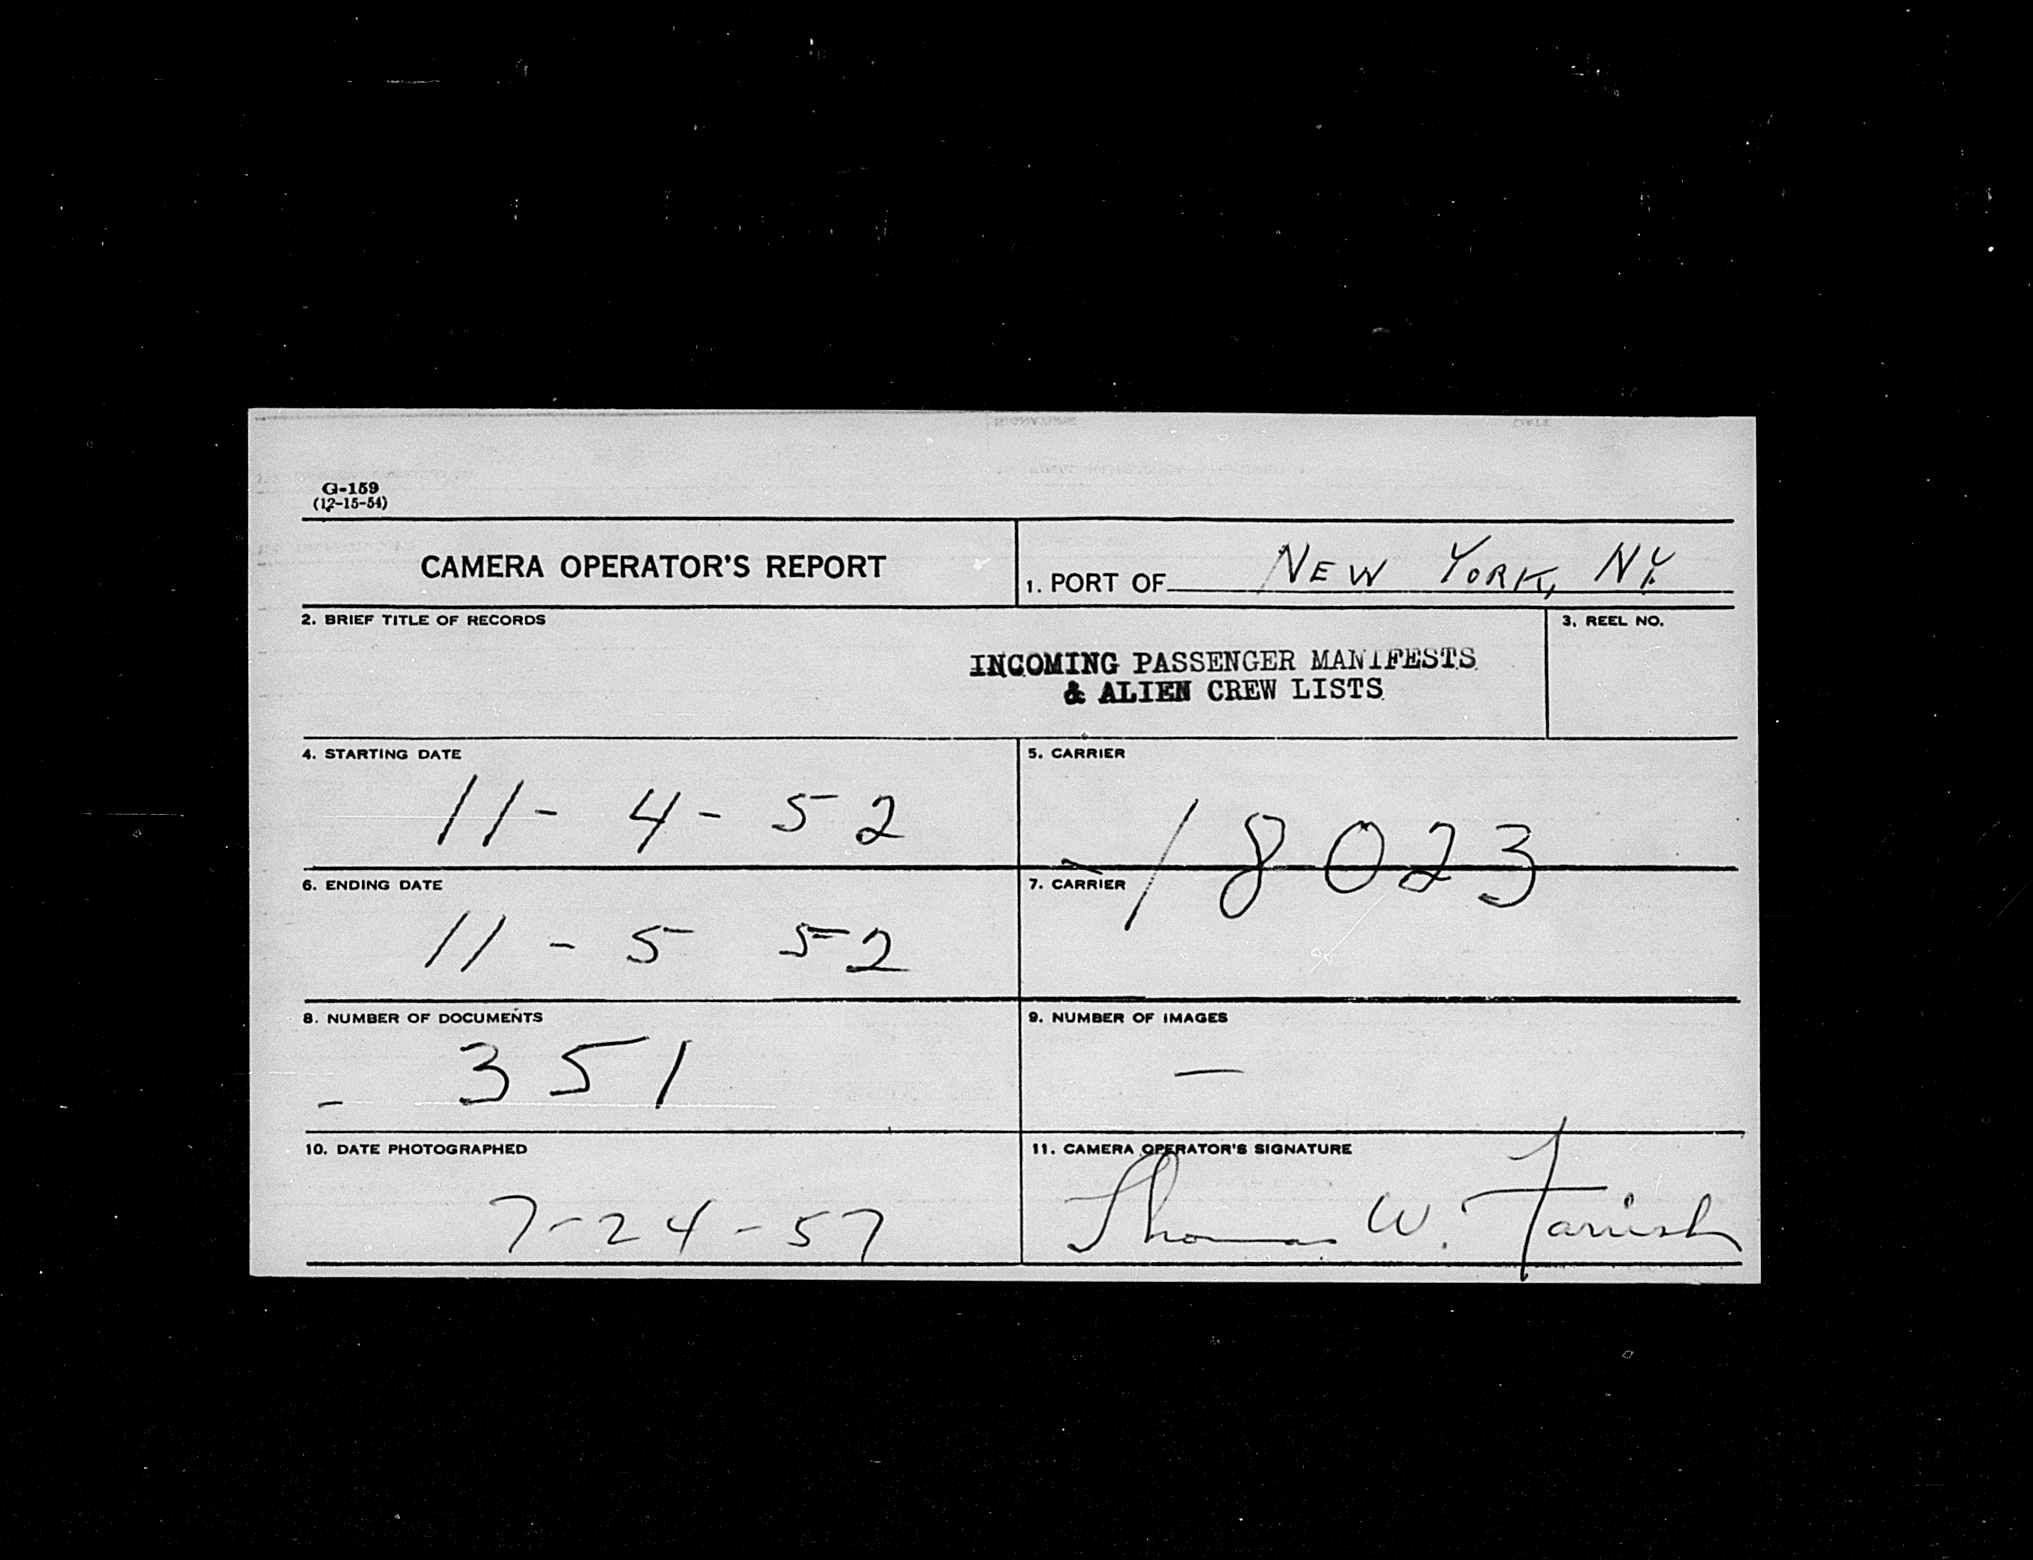 G-159
(12-15-54)
CAMERA OPERATOR'S REPORT
1. PORT OF NEW YORK, NY.
2. BRIEF TITLE OF RECORDS
INCOMING PASSENGER MANIFESTS
& ALIEN CREW LISTS
3. REEL NO.
4. STARTING DATE
11-4-52
5. CARRIER
18023
6. ENDING DATE
11-5 52
7. CARRIER
8. NUMBER OF DOCUMENTS
- 351
9. NUMBER OF IMAGES
—
10. DATE PHOTOGRAPHED
7-24-57
11. CAMERA OPERATOR'S SIGNATURE
Thomas W. Farrish